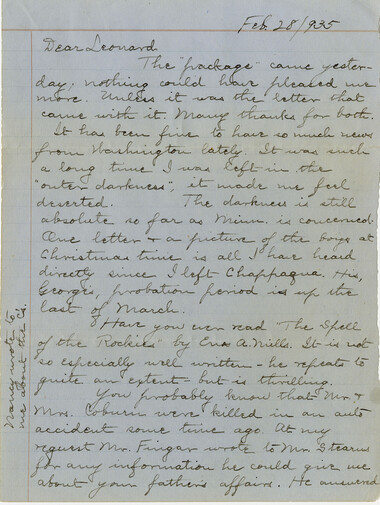 Feb. 28/1935
Dear Leonard
The "package" came yester-
day; nothing could have pleased me
more. Unless it was the letter that
came with it. Many thanks for both.
It has been fine to have so much news
from Washington lately. It was such
a long time I was left in the
"outer darkness", it made me feel
deserted. The darkness is still
absolute so far as Minn. is concerned.
One letter & a picture of the boys at
Christmas time is all I have heard
directly since I left Chappaqua. His,
George's, probation period is up the
last of March.
Have you ever read "The Spell
of the Rockies" by Enos A. Mills. It is not
so especially well written - he repeats to
quite an extent - but is thrilling.
You probably know that Mr. &
Mrs. Coburn were killed in an auto
accident some time ago. At my
request Mr. Fingar wrote to Mr. Stearns
for any information he could give me
about your father's affairs. He answered
Nancy wrote to
me about the Cs.